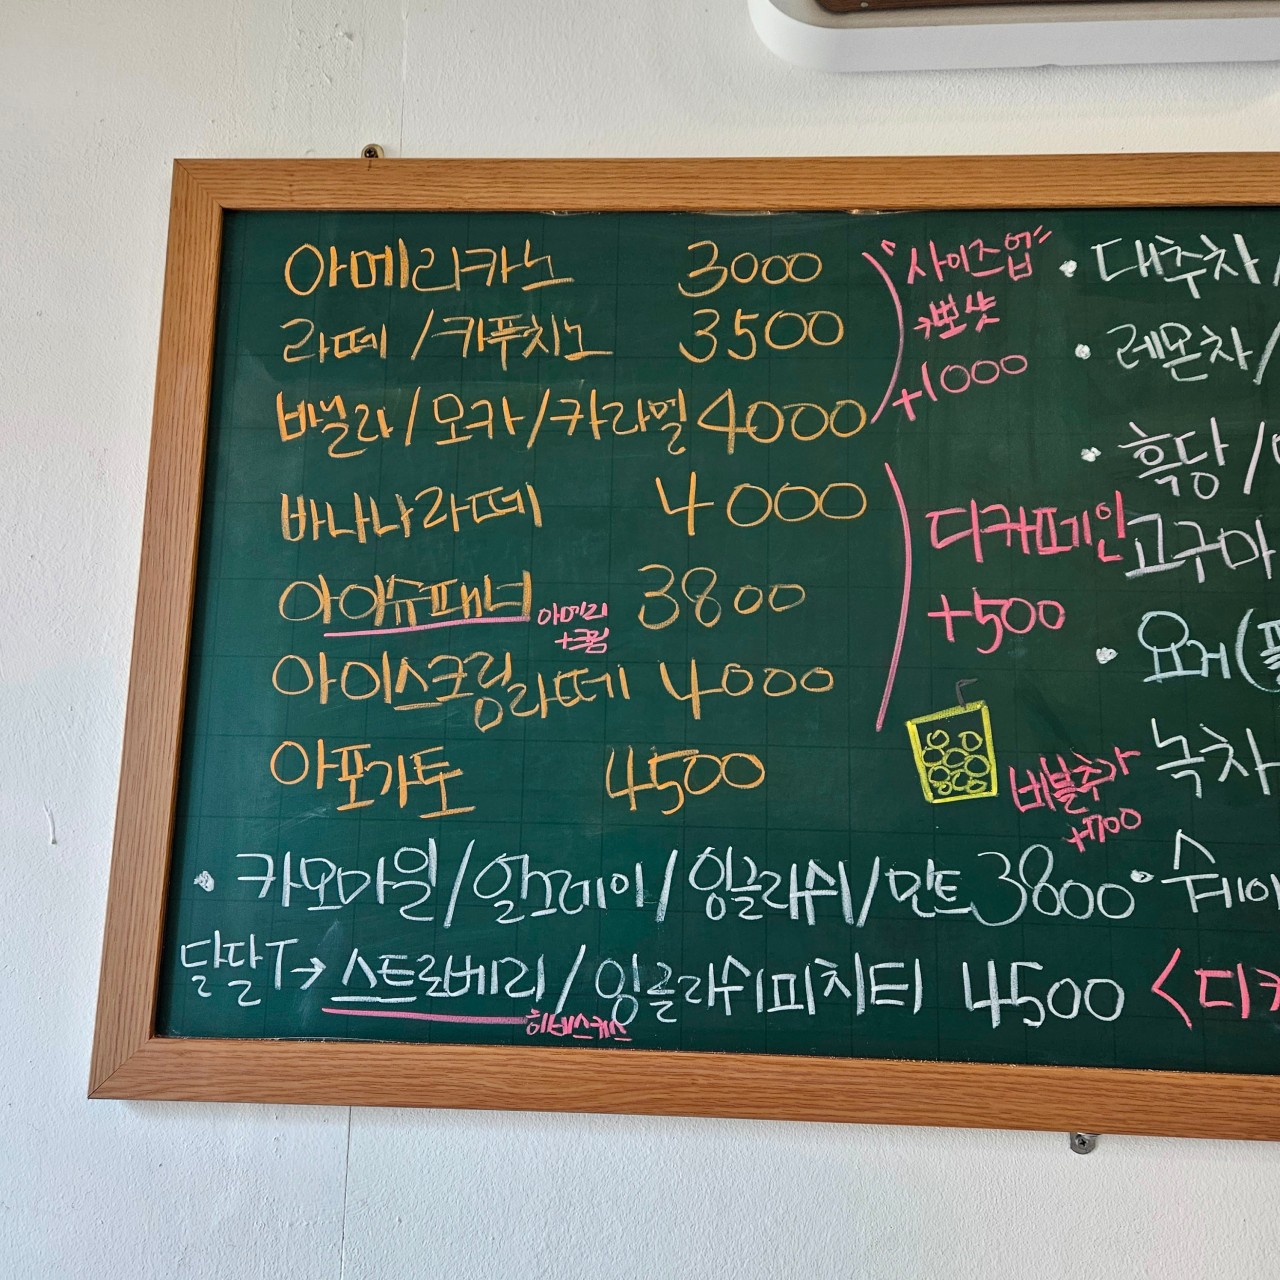 아메리카노 3000
라떼/카푸치노 3500
바닐라/모카/카라멜 4000
바나나라떼 4000
아이슈패너 3800
아메리
+크림
아이스크림라떼 4000
아포가토 4500
"사이즈업"
+1000
디카페인
+500
버블추가
+700
· 대추차/
· 레몬차/
· 흑당/
고구마
· 요거(플
녹차
· 카모마일/얼그레이/잉글리쉬/민트 3800
달달T→ 스트로베리/잉글리쉬피치티 4500
히비스커스
<디카